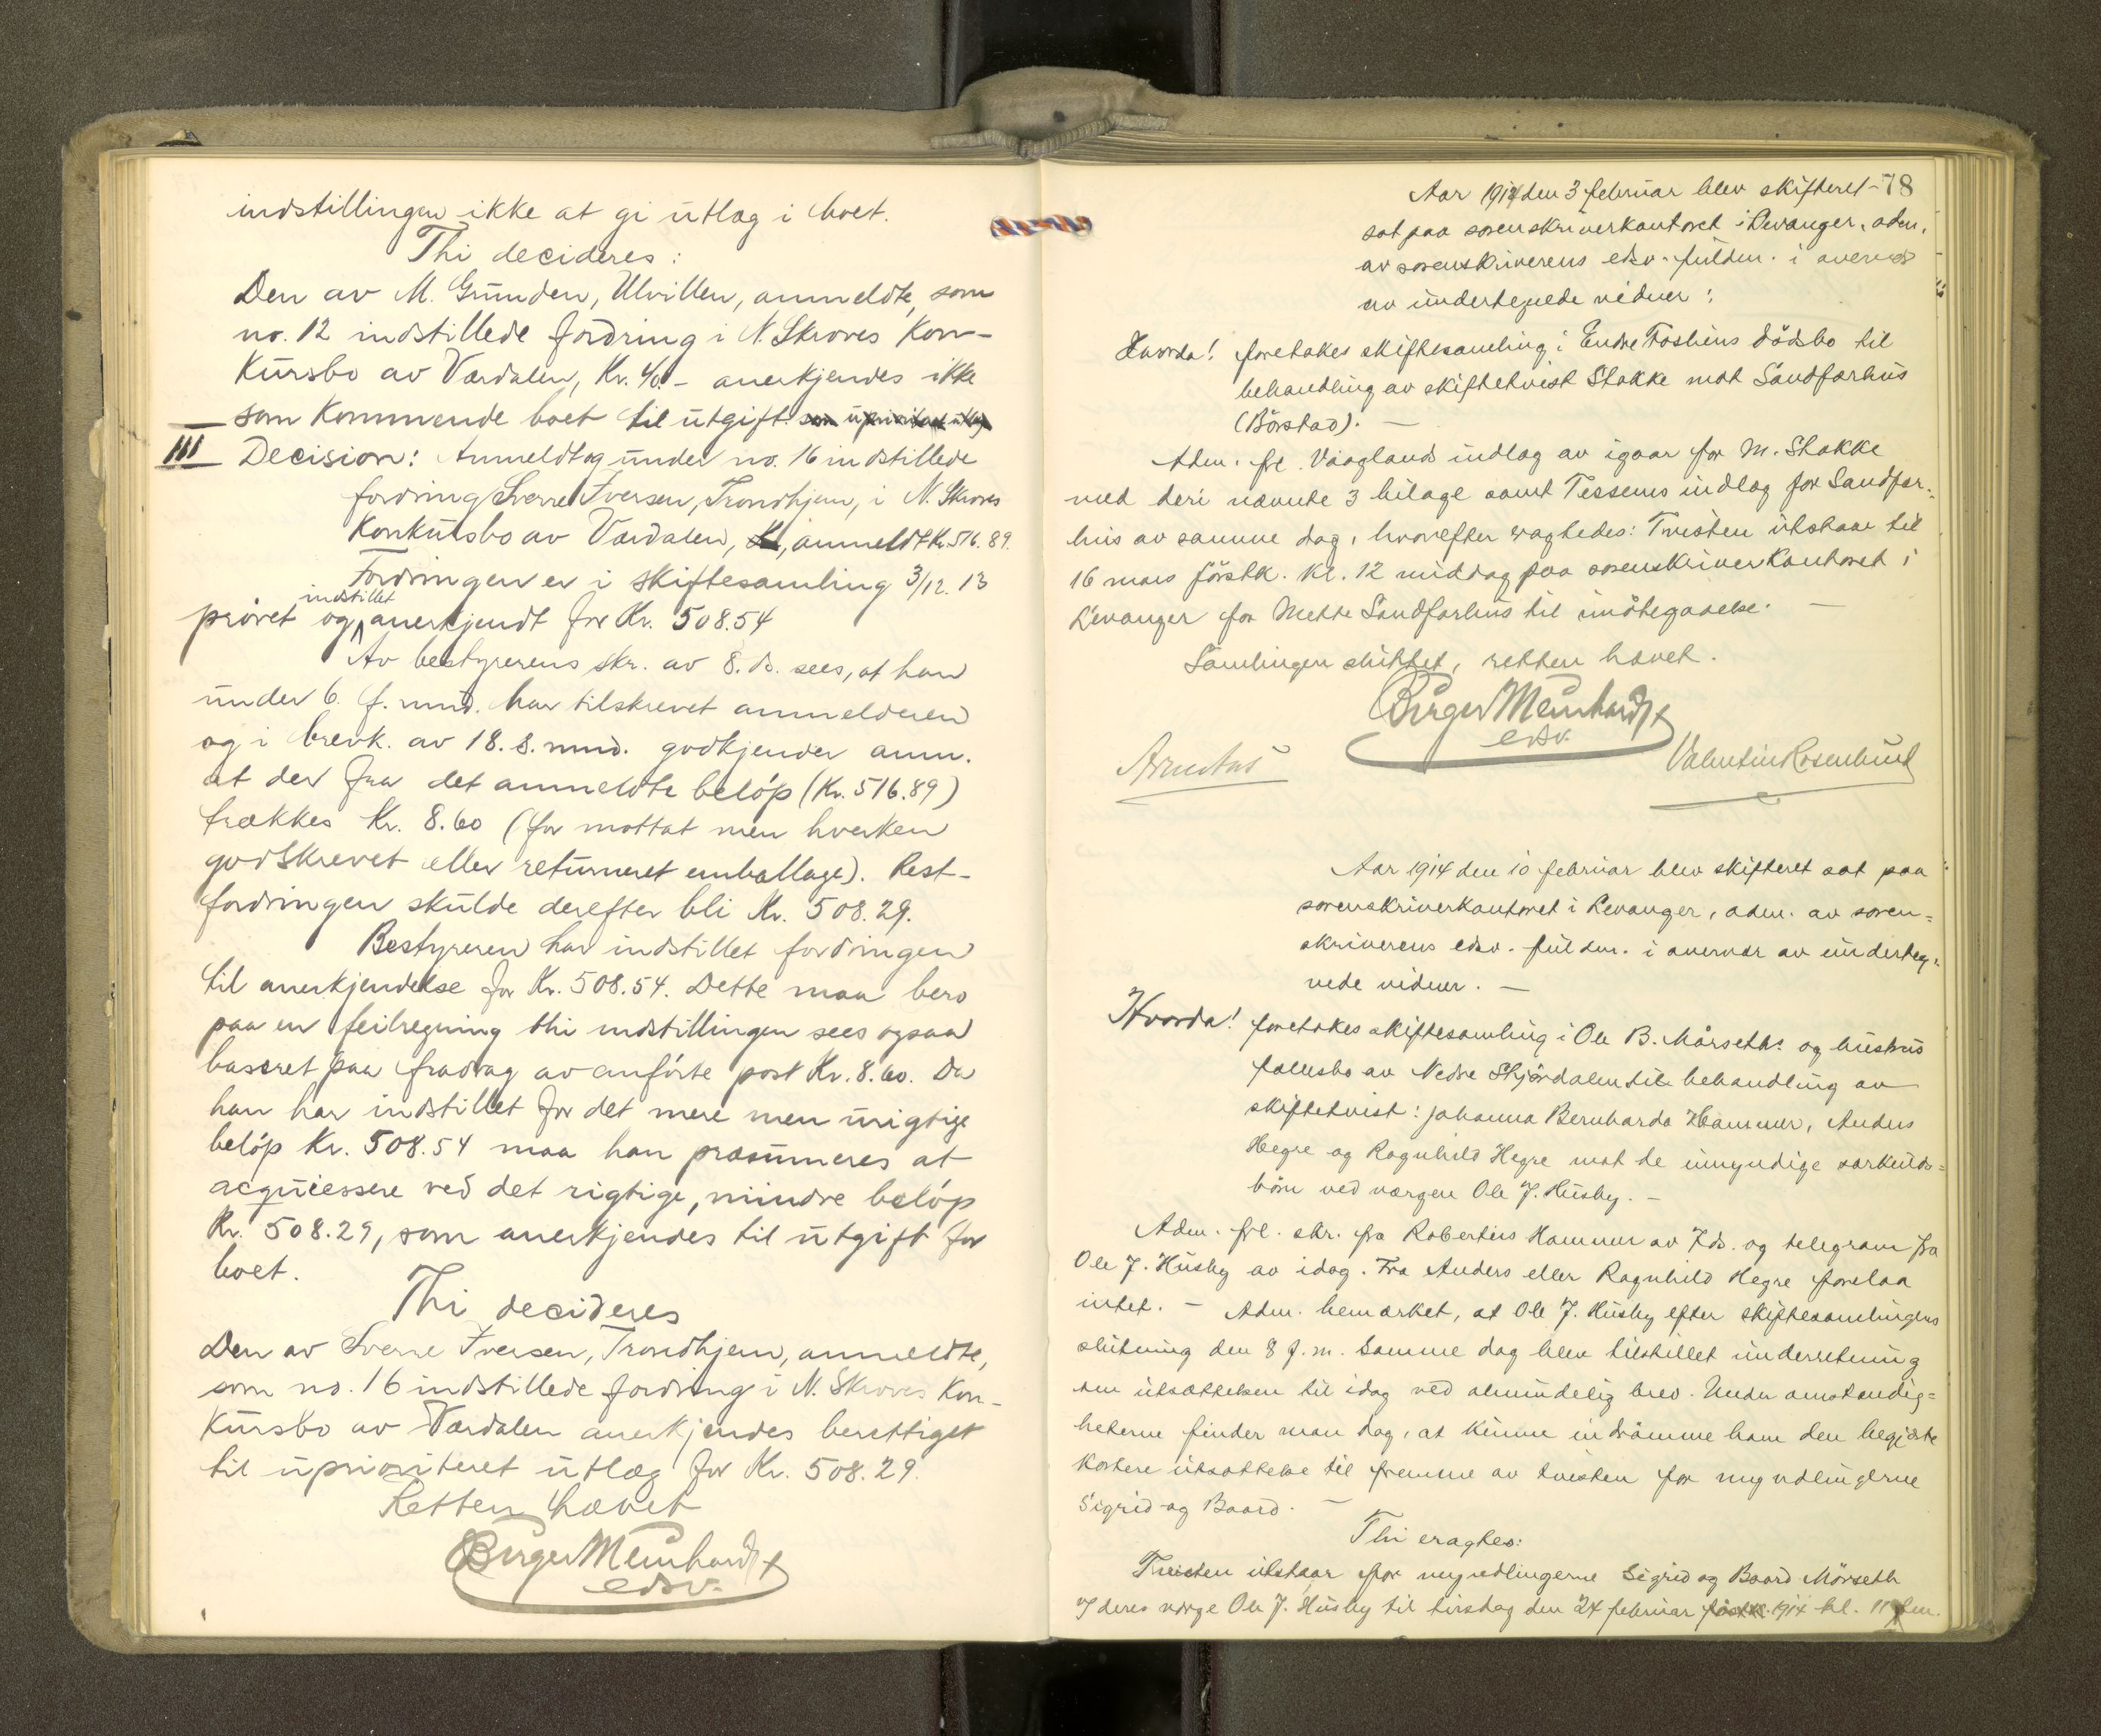 indstillingen ikke at gi utlæg i boet.
Thi decideres:
Den av M. Grunden, Ulvillen, anmeldte, som
no. 12 indstillede fordring i N. Skroves Kon-
kursbo av Værdalen, Kr. 40.- anerkjendes ikke
som kommende boet til utgift. som uprioritert utlæg
III Decision: Anmeldt og under no. 16 indstillede
fordring Sverre Iversen, Trondhjem, i N. Skroves
Konkursbo av Værdalen, anmeldt Kr. 516.89.
Fordringen er i skiftesamling 3/12. 13
prøvet og indstillet anerkjendt for Kr. 508.54
Av bestyrerens skr. av 8. ds. sees, at han
under 6. f. mnd. har tilskrevet anmelderen
og i brevk. av 18. s. mnd. godkjender anm.
at der fra det anmeldte beløp (Kr. 516.89)
trækkes Kr. 8.60 (for mottat men hverken
godskrevet eller returneret emballage). Rest-
fordringen skulde derefter bli Kr. 508.29.
Bestyreren har indstillet fordringen
til anerkjendelse for Kr. 508.54. Dette maa bero
paa en feilregning thi indstillingen sees ogsaa
baseret paa fradrag av anførte post Kr. 8.60. Da
han har indstillet for det mere men urigtige
beløp Kr. 508.54 maa han præsumeres at
acquiessere ved det rigtige, mindre beløp
Kr. 508.29, som anerkjendes til utgift for
boet.
Thi decideres
Den av Sverre Iversen, Trondhjem, anmeldte,
som no. 16 indstillede fordring i N. Skroves Kon-
kursbo av Værdalen anerkjendes berettiget
til uprioriteret utlæg for Kr. 508.29.
Retten hævet
Birger Meinhardt
edsv.
78
Aar 1914 den 3 februar blev skifteret
sat paa sorenskriverkontoret i Levanger, adm.
av sorenskriverens edsv. fuldm. i overvær
av undertegnede vidner:
Hvorda! foretakes skiftesamling i Endre Fosliens dødsbo til
behandling av skiftetvist Stokke mot Sandfærhus
(Børstad). —
Adm. frl. Vaaglands indlæg av igaar for M. Stokke
med deri nævnte 3 bilage samt Tessems indlæg for Sandfær-
hus av samme dag, hvorefter eragtedes: Tvisten utstaar til
16 mars førstk. kl. 12 middag paa sorenskriverkontoret i
Levanger for Mette Sandfærhus til imøtegaaelse. —
Samlingen sluttet, retten hævet.
Birger Meinhardt
edsv.
Valentin Rosenlund
Aar 1914 den 10 februar blev skifteret sat paa
sorenskriverkontoret i Levanger, adm. av soren=
skriverens edsv. fuldm. i overvær av underteg=
nede vidner. —
Hvorda! foretakes skiftesamling i Ole B. Mørseths og hustrus
fællesbo av Nedre Stjørdalen til behandling av
skiftetvist: Johanna Bernharda Hammer, Anders
Hegre og Ragnhild Hegre mot de umyndige særkulds=
børn ved værgen Ole J. Husby. —
Adm. frl. skr. fra Robertius Hammer av 7 ds. og telegram fra
Ole J. Husby av idag. Fra Anders eller Ragnhild Hegre forelaa
intet. — Adm. bemærket, at Ole J. Husby efter skiftesamlingens
slutning den 8 f. m. samme dag blev tilstillet underretning
om utsættelsen til idag ved almindelig brev. Under omstendig=
heterne finder man dog, at kunne indrømme ham den begjærte
kortere utsættelse til fremme av tvisten for myndlingerne
Sigrid og Baard. —
Thi eragtes:
Tvisten utstaar for myndlingerne Sigrid og Baard Mørseth
v/ deres værge Ole J. Husby til tirsdag den 24 februar førstk. 1914 kl. 11 fm.